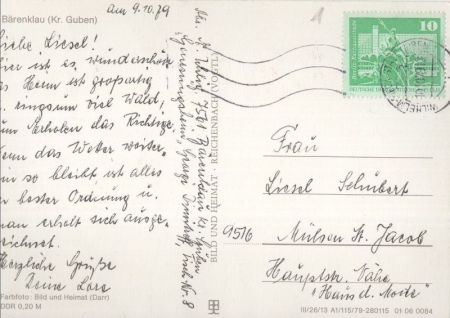 Am 9.10.79
Bärenklau (Kr. Guben)
iebe Liesel!
Hier ist es wunderschön
as Heim ist großartig
ringsum viel Wald,
um Erholen das Richtige
Wenn das Wetter weiter
so bleibt ist alles
n bester Ordnung u.
man erholt sich ausge-
zeichnet.
Herzliche Grüße
Deine Lore
Farbfoto: Bild und Heimat (Darr)
DDR 0,20 M
7501 Bärenklau Kr. Guben
Genesungsheim, Georgi Dimitroff, Tisch Nr. 8
BILD UND HEIMAT · REICHENBACH (VOGTL)
1
10
Frau
Liesel Schubert
9516 Mülsen St. Jacob
Hauptstr. Nähe
"Haus d. Mode"
III/26/13 A1/115/79-280115 01 06 0064